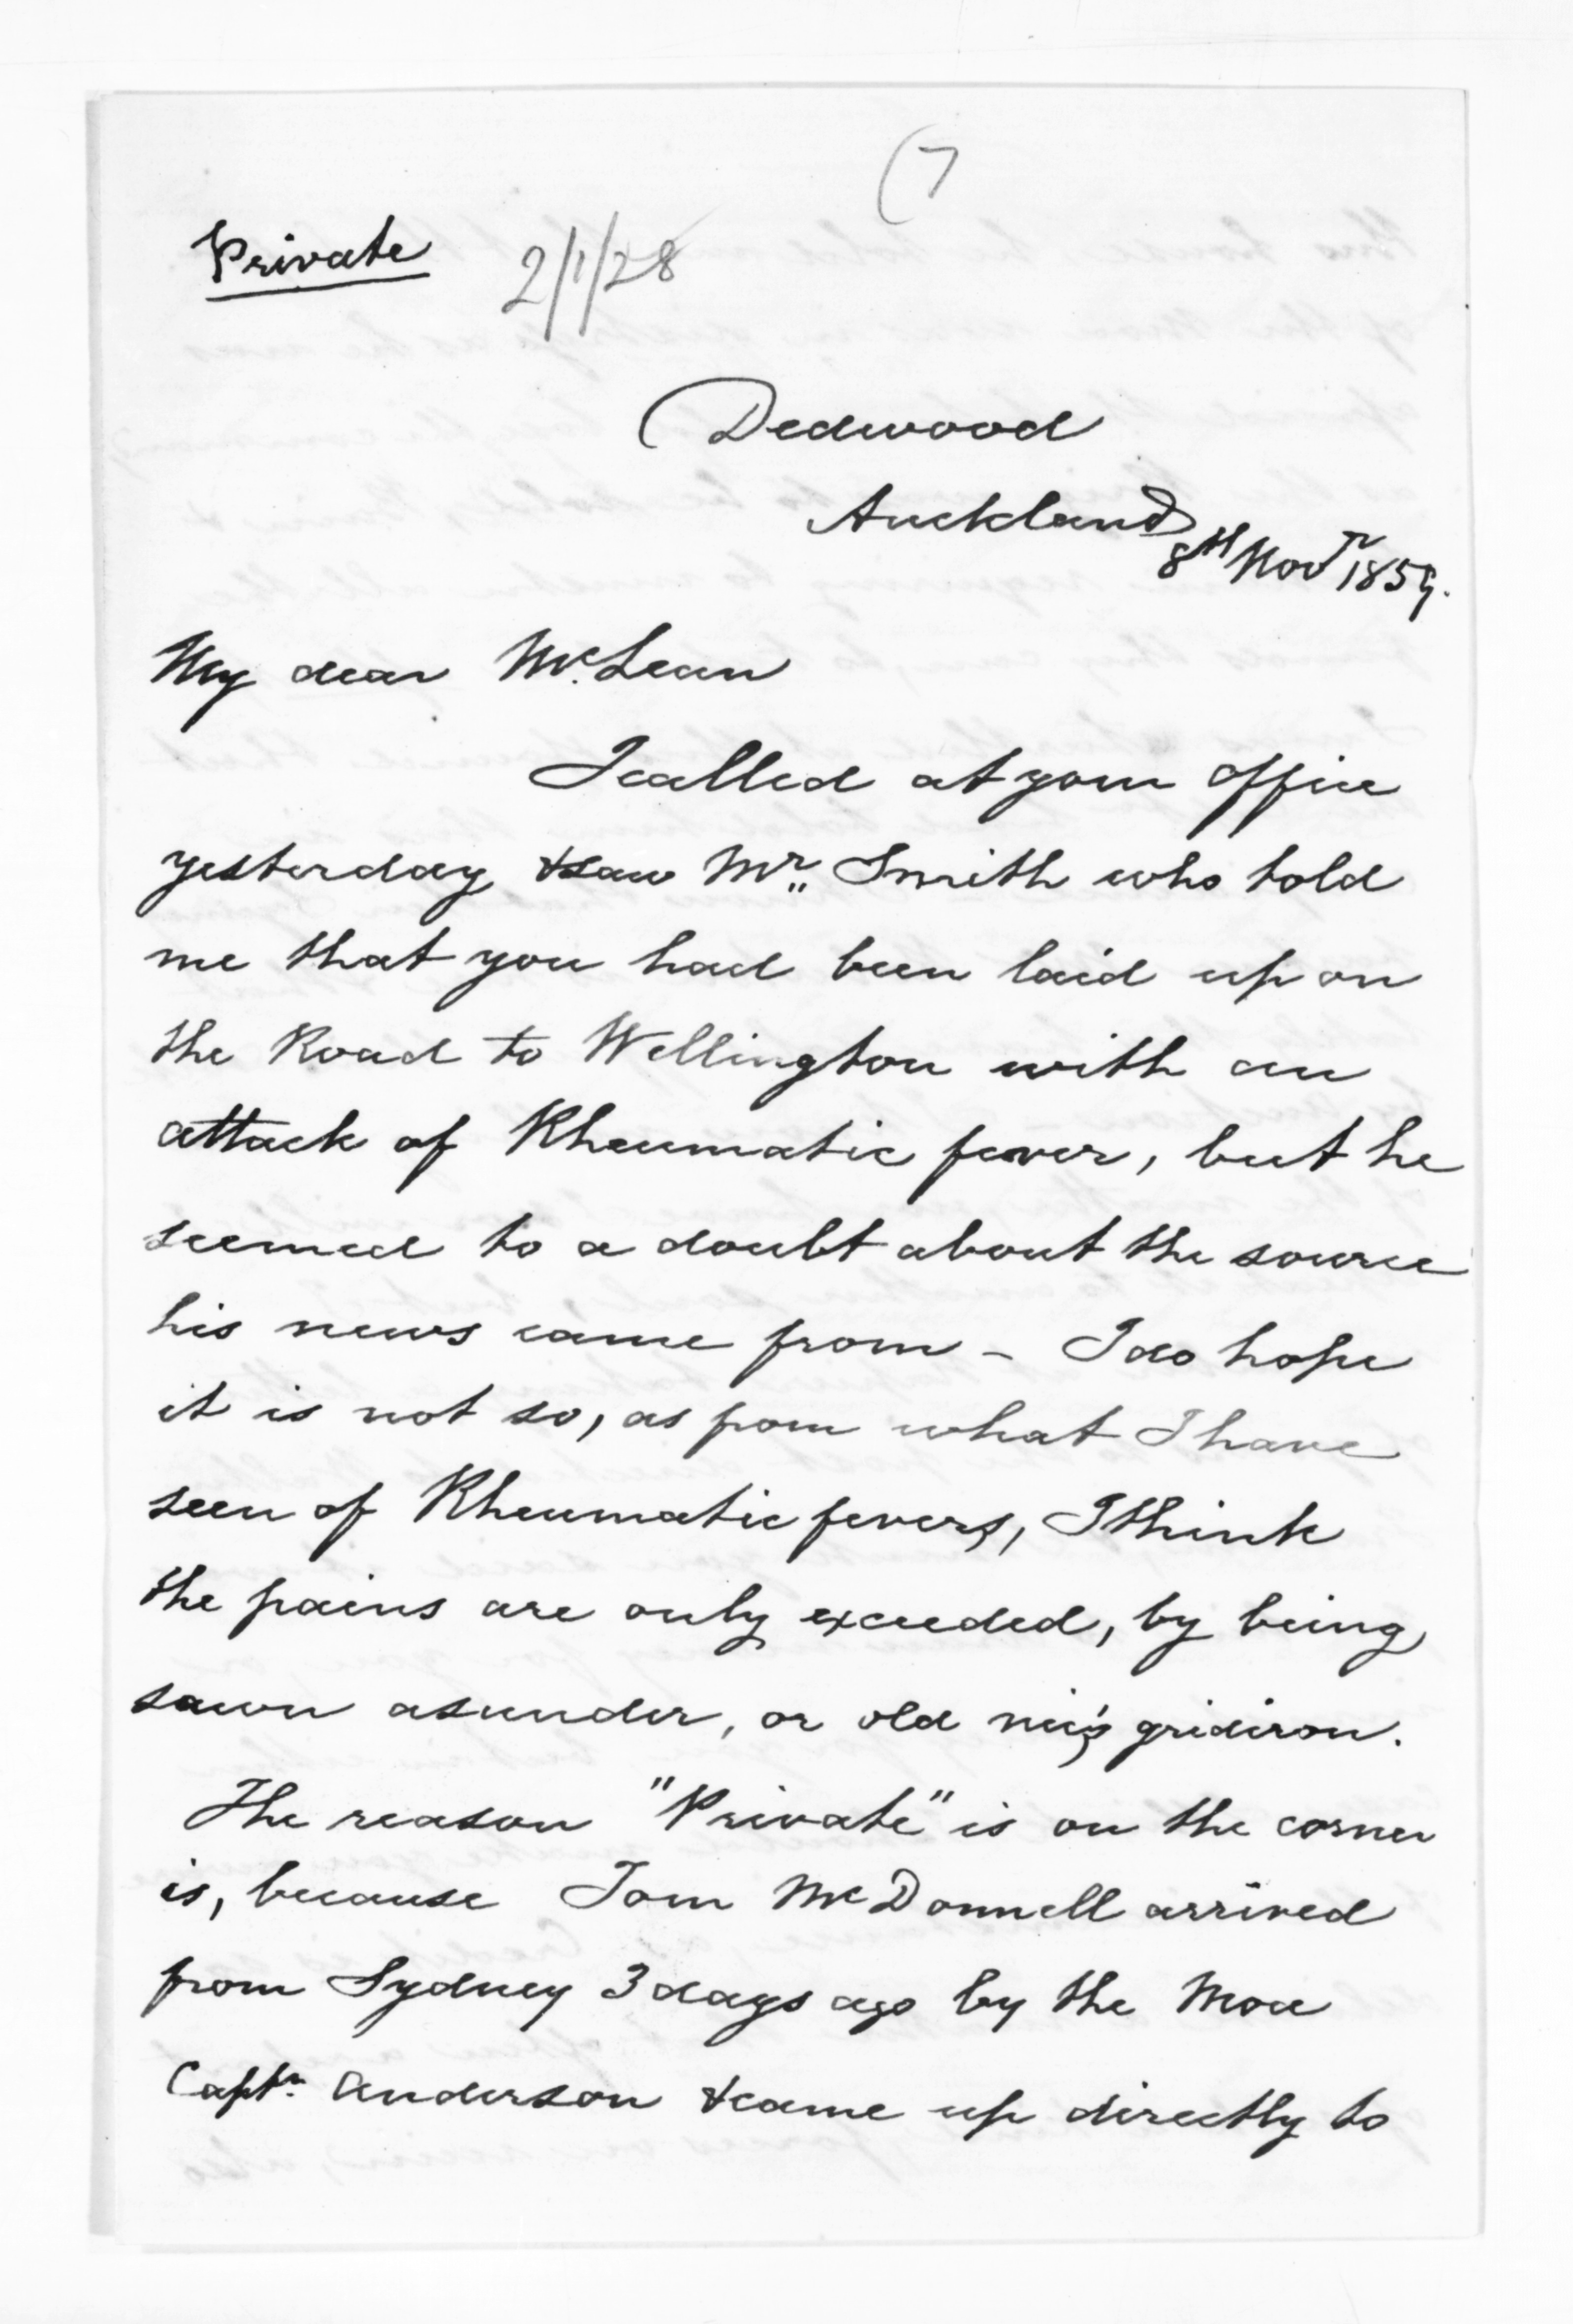 (7
Private 2/1/28
Dedwood
Auckland
8th Novr 1859.
My dear McLean
I called at your office
yesterday & saw Mr Smith who told
me that you had been laid up on
the Road to Wellington with an
attack of Rheumatic fever, but he
seemed to a doubt about the source
his news came from - I do hope
it is not so, as from what I have
seen of Rheumatic fevers, I think
the pains are only exceeded, by being
sawn asunder, or old nic's gridiron.
The reason "Private" is on the corner
is, because Tom McDonnell arrived
from Sydney 3 days ago by the Moa
Captn. Anderson & came up directly to